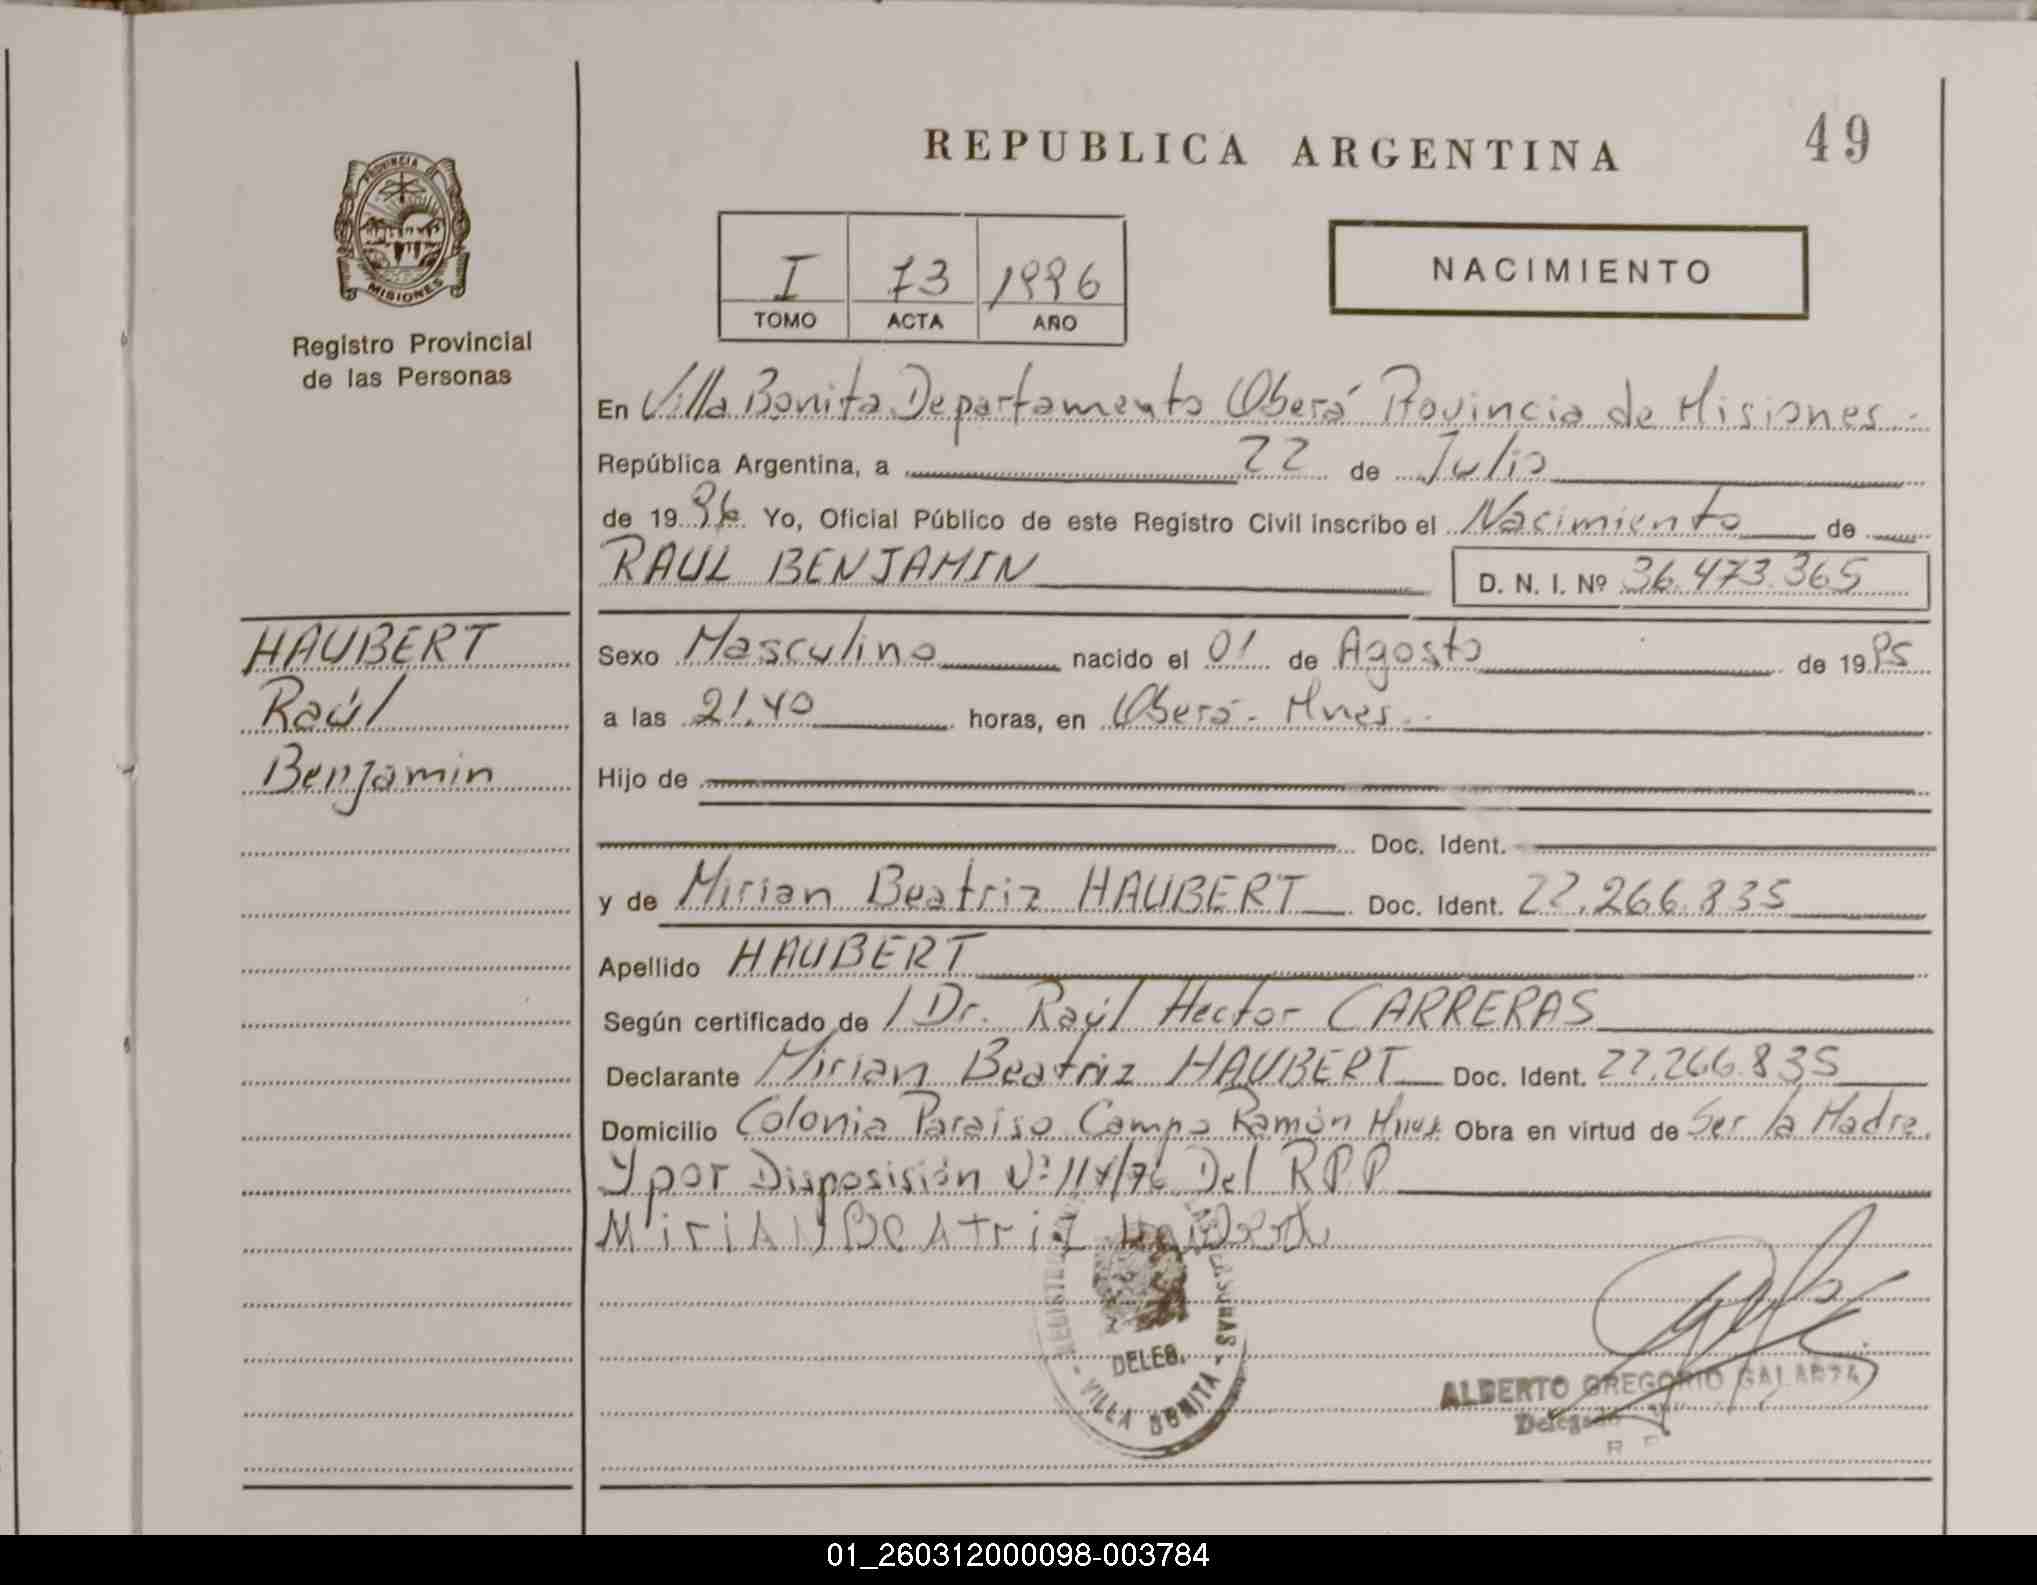 REPUBLICA ARGENTINA
49
PROVINCIA
MISIONES
Registro Provincial
de las Personas
I 73 1996
TOMO ACTA AÑO
NACIMIENTO
En Villa Bonita Departamento Oberá Provincia de Misiones.
República Argentina, a 22 de Julio
de 1996 Yo, Oficial Público de este Registro Civil inscribo el Nacimiento de
RAUL BENJAMIN D. N. I. Nº 36.473.365
HAUBERT
Raúl
Benjamin
Sexo Masculino nacido el 01 de Agosto de 1995
a las 21.40 horas, en Oberá - Mnes.
Hijo de
Doc. Ident.
y de Mirian Beatriz HAUBERT Doc. Ident. 22.266.835
Apellido HAUBERT
Según certificado de / Dr. Raúl Hector CARRERAS
Declarante Mirian Beatriz HAUBERT Doc. Ident. 22.266.835
Domicilio Colonia Paraiso Campo Ramón Mnes Obra en virtud de Ser la Madre.
y por Disposisión Nº 114/76 Del RPP
MiriAN BeAtriz Haubert
DELEG.
- VILLA BONITA -
ALBERTO GREGORIO GALARZA
Delegado
01_260312000098-003784